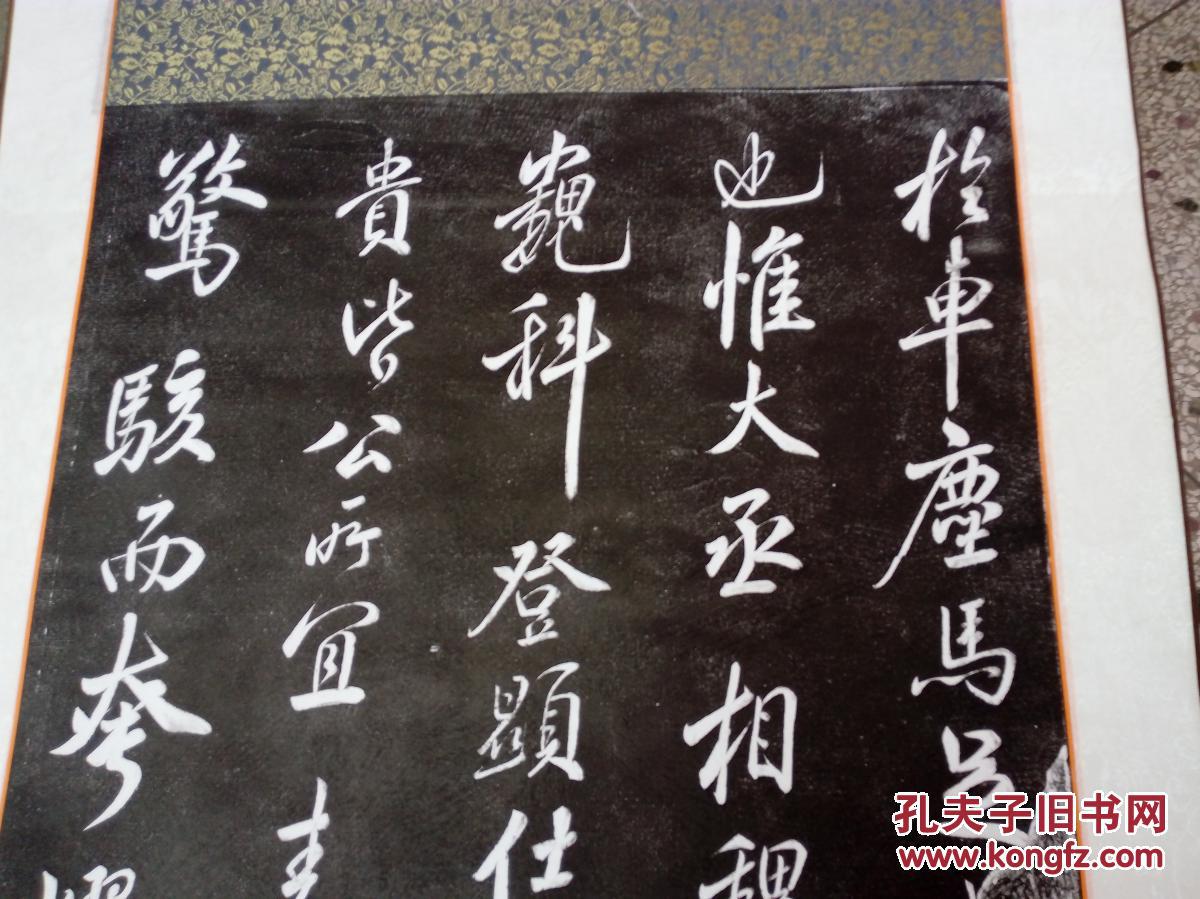 於車塵馬足
也惟大丞相魏
巍科登顯仕
貴皆公所宜
驚駭而夸耀
孔夫子旧书网
www.kongfz.com